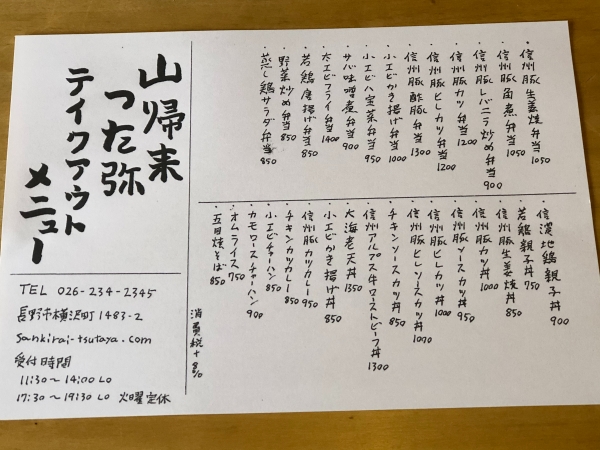 山帰来
つた弥
テイクアウト
メニュー
TEL 026-234-2345
長野市横沢町1483-2
sankirai-tsutaya.com
受付時間
11:30〜14:00 LO
17:30〜19:30 LO 火曜定休
・信州豚生姜焼弁当 1050
・信州豚角煮弁当 1050
・信州豚レバニラ炒め弁当 900
・信州豚カツ弁当 1200
・信州豚ヒレカツ弁当 1200
・信州豚酢豚弁当 1300
・小エビかき揚げ弁当 1000
・小エビ八宝菜弁当 950
・サバ味噌煮弁当 900
・大エビフライ弁当 1400
・若鶏唐揚げ弁当 850
・野菜炒め弁当 850
・蒸し鶏サラダ弁当 850
・信濃地鶏親子丼 900
・若鶏親子丼 750
・信州豚生姜焼丼 850
・信州豚カツ丼 1000
・信州豚ソースカツ丼 950
・信州豚ヒレカツ丼 1000
・信州豚ヒレソースカツ丼 1000
・チキンソースカツ丼 850
・信州アルプス牛ローストビーフ丼 1300
・大海老天丼 1350
・小エビかき揚げ丼 850
・信州豚カツカレー 950
・チキンカツカレー 850
・小エビチャーハン 850
・カモロースチャーハン 900
・オムライス 750
・五目焼そば 850
消費税+8%